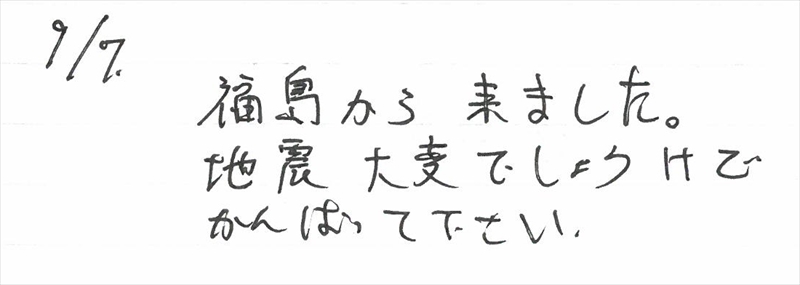 9/7.
福島から 来ました。
地震 大変でしょうけど
がんばって下さい.